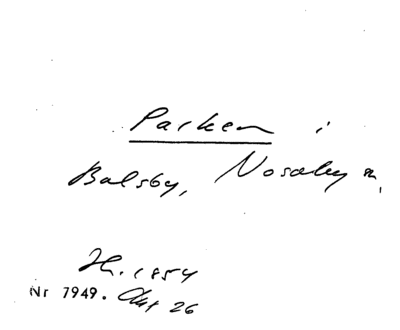 Parken i
Balsby, Nosaby sn,
H. 1854
Nr 7949. Akt 26